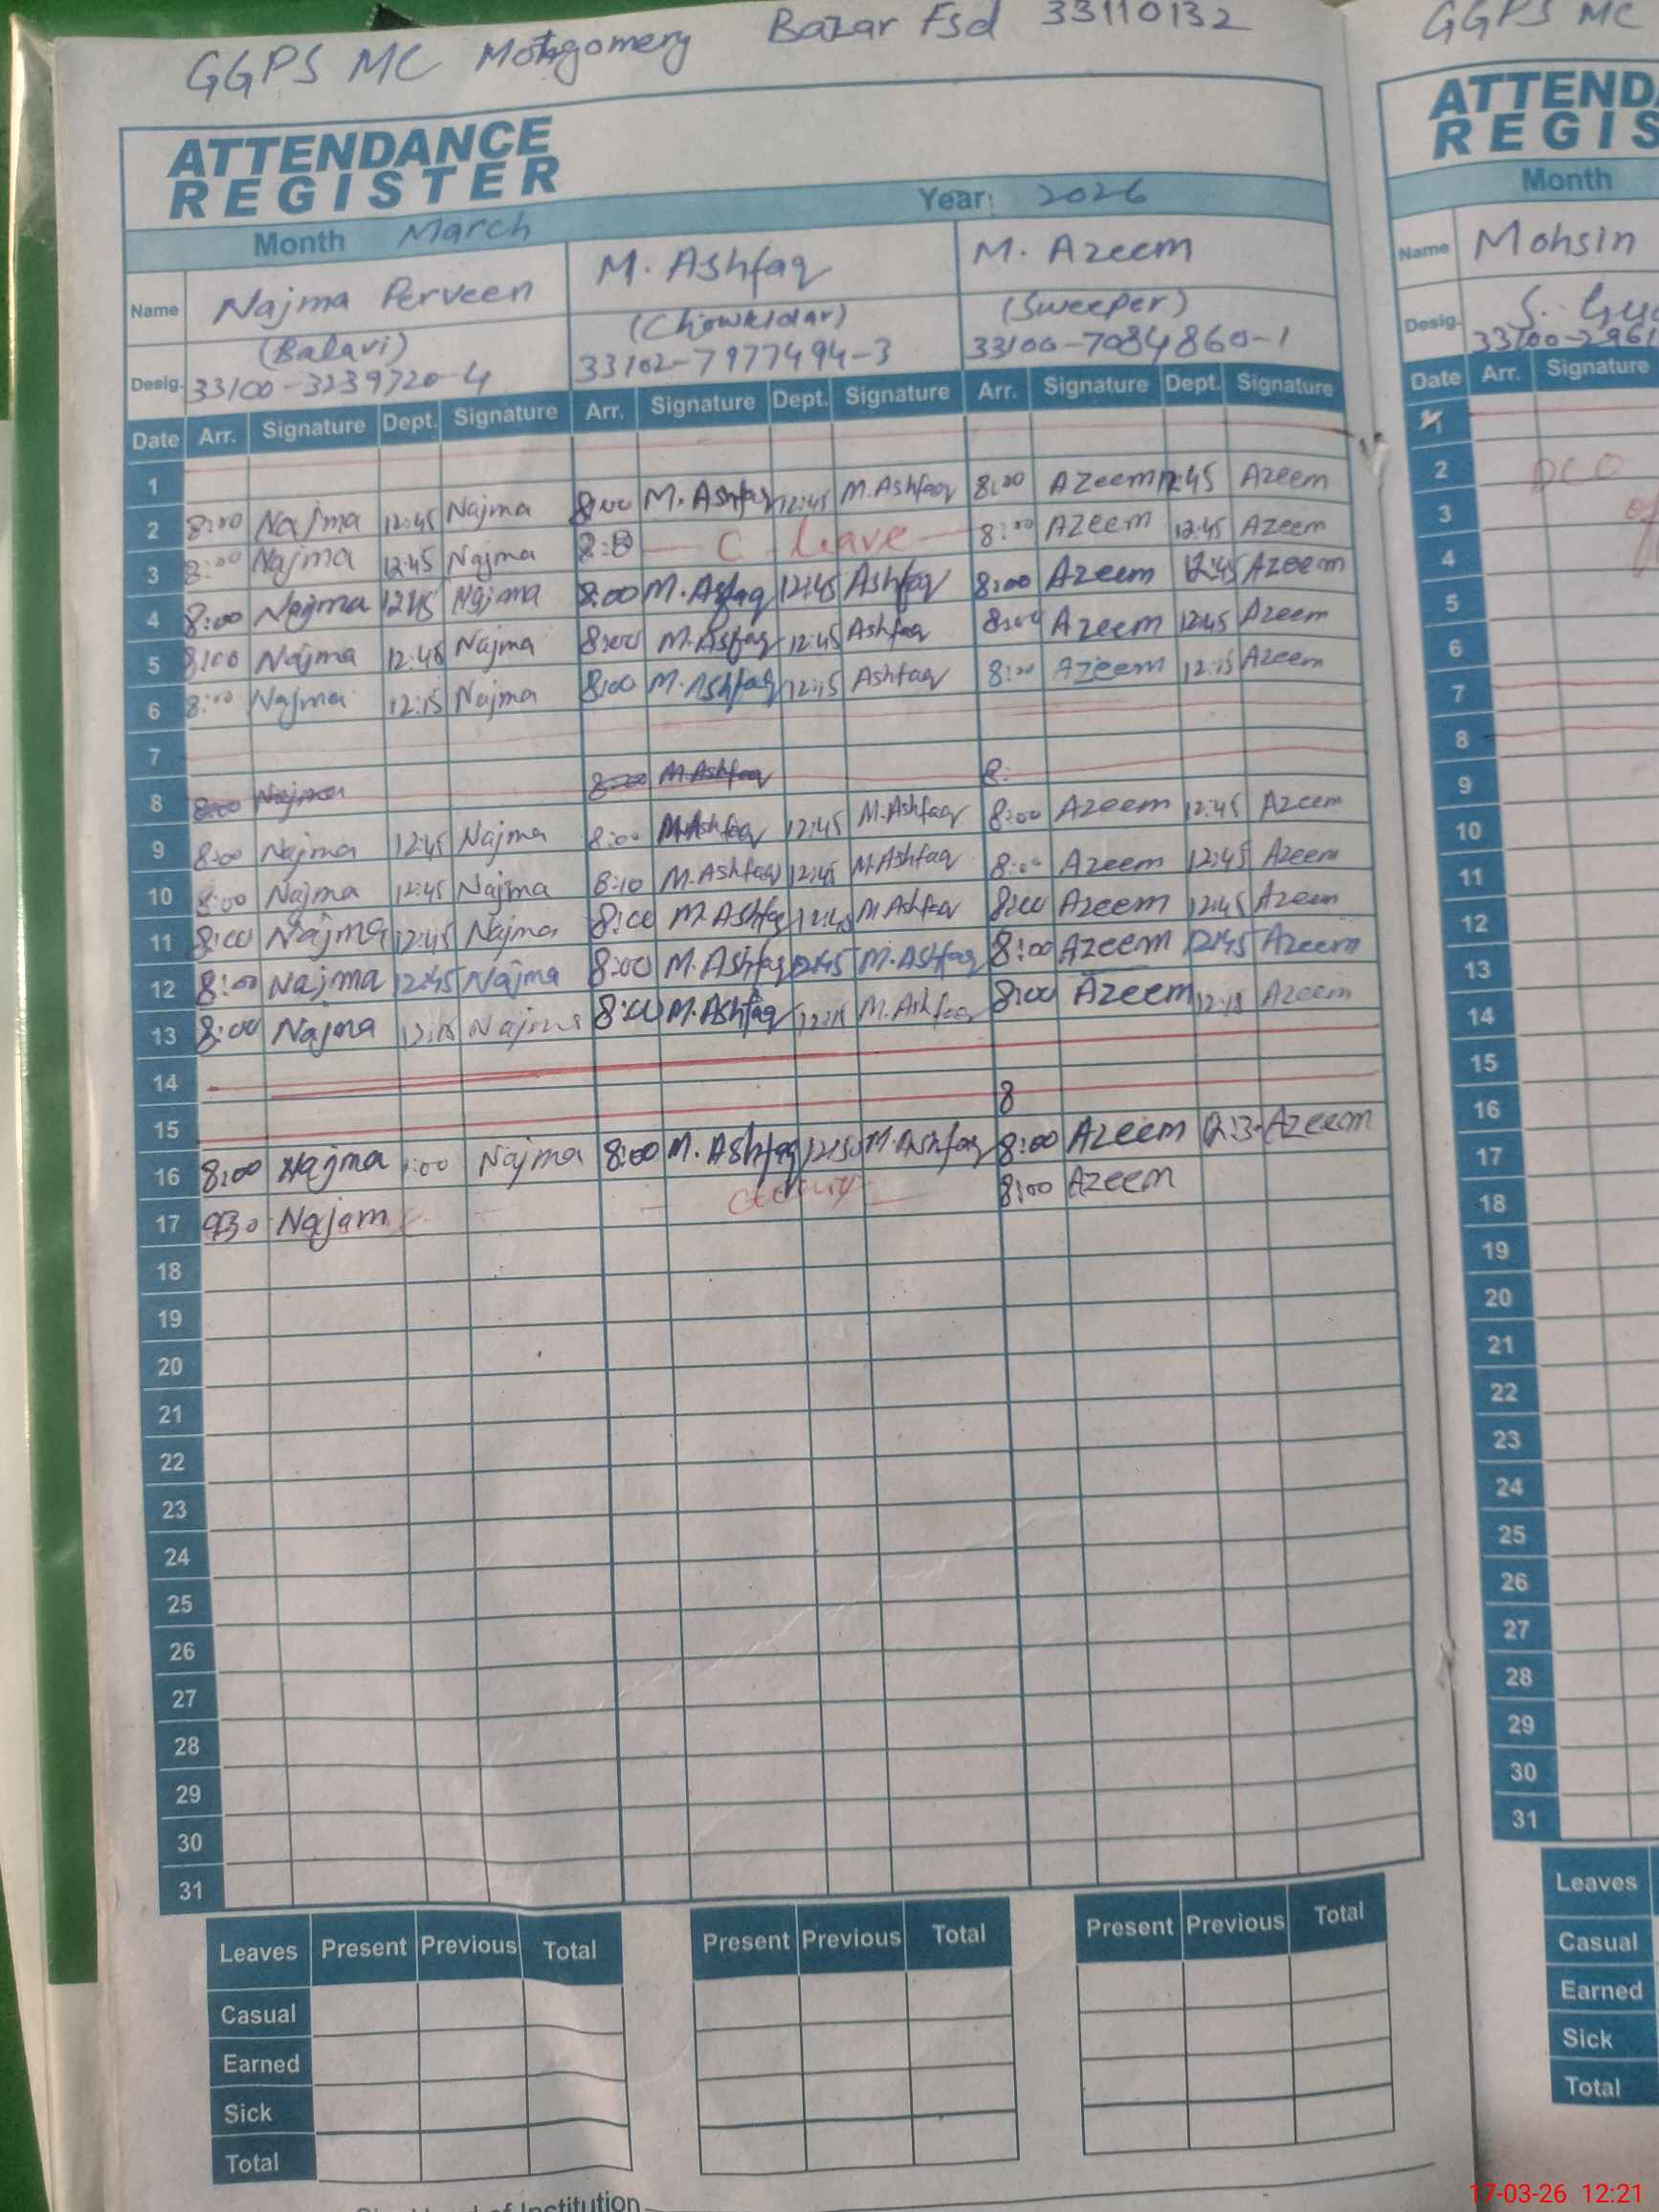 GGPS MC Montgomery Bazar Fsd 33110132
ATTENDANCE
REGISTER
Month March Year: 2026
Name Najma Perveen M. Ashfaq M. Azeem
(Balavi) (Chowkidar) (Sweeper)
Desig. 33100-3239720-4 33102-7977494-3 33100-7084860-1
Date Arr. Signature Dept. Signature Arr. Signature Dept. Signature Arr. Signature Dept. Signature
1
2 8:00 Najma 12:45 Najma 8:00 M. Ashfaq 12:45 M. Ashfaq 8:00 Azeem 12:45 Azeem
3 8:00 Najma 12:45 Najma C - leave 8:00 Azeem 12:45 Azeem
4 8:00 Najma 12:45 Najma 8:00 M. Asfaq 12:45 Ashfaq 8:00 Azeem 12:45 Azeem
5 8:00 Najma 12:45 Najma 8:00 M. Asfaq 12:45 Ashfaq 8:00 Azeem 12:45 Azeem
6 8:00 Najma 12:15 Najma 8:00 M. Ashfaq 12:15 Ashfaq 8:00 Azeem 12:15 Azeem
7
8 8:00 Najma 8:00 M. Ashfaq 8:
9 8:00 Najma 12:45 Najma 8:00 M. Ashfaq 12:45 M. Ashfaq 8:00 Azeem 12:45 Azeem
10 8:00 Najma 12:45 Najma 8:10 M. Ashfaq 12:45 M. Ashfaq 8:00 Azeem 12:45 Azeem
11 8:00 Najma 12:45 Najma 8:00 M. Ashfaq M. Ashfaq 8:00 Azeem 12:45 Azeem
12 8:00 Najma 12:45 Najma 8:00 M. Ashfaq 12:45 M. Ashfaq 8:00 Azeem 12:45 Azeem
13 8:00 Najma 12:15 Najma 8:00 M. Ashfaq 12:15 M. Ashfaq 8:00 Azeem 12:15 Azeem
14
15 8
16 8:00 Najma 1:00 Najma 8:00 M. Ashfaq 12:30 M. Ashfaq 8:00 Azeem 12:3 Azeem
17 930 Najam 8:00 Azeem
18
19
20
21
22
23
24
25
26
27
28
29
30
31
Leaves Present Previous Total Present Previous Total Present Previous Total
Casual
Earned
Sick
Total
of Institution
GGPS MC
ATTENDA
REGIS
Month
Name Mohsin
Desig.
33100-2961
Date Arr. Signature
1
2 DCO
3
4
5
6
7
8
9
10
11
12
13
14
15
16
17
18
19
20
21
22
23
24
25
26
27
28
29
30
31
Leaves
Casual
Earned
Sick
Total
17-03-26 12:21